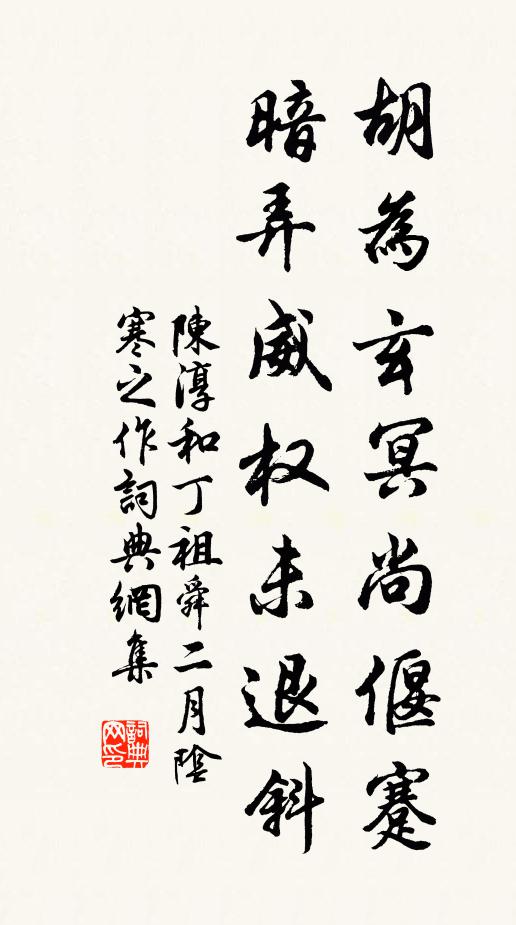 胡為玄冥尚偃蹇
暗弄威权未退斜
陳淳和丁祖舜二月陰
寒之作詞典網集
詞典
网印